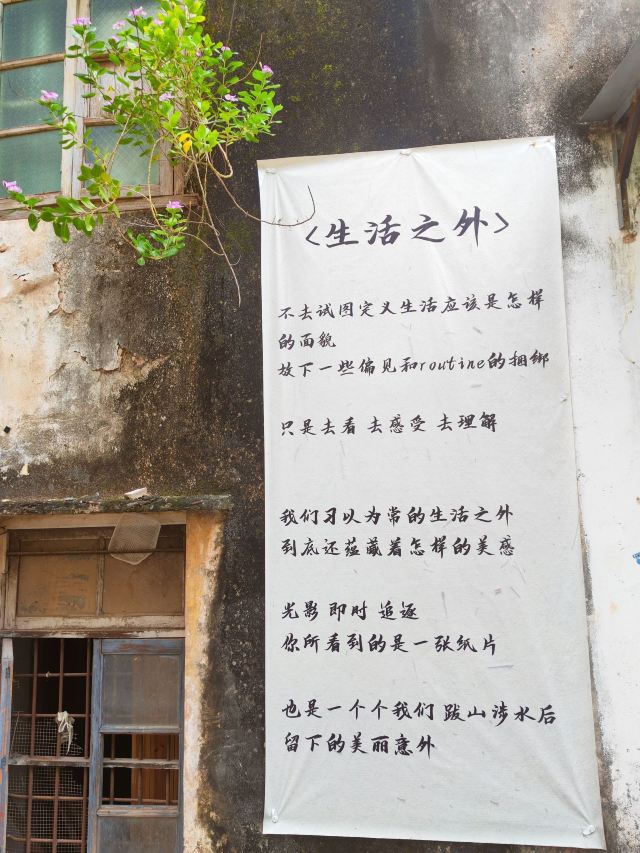 <生活之外>
不去试图定义生活应该是怎样
的面貌
放下一些偏见和routine的捆绑
只是去看 去感受 去理解
我们习以为常的生活之外
到底还蕴藏着怎样的美感
光影 即时 追逐
你所看到的是一张纸片
也是一个个我们 跋山涉水后
留下的美丽意外